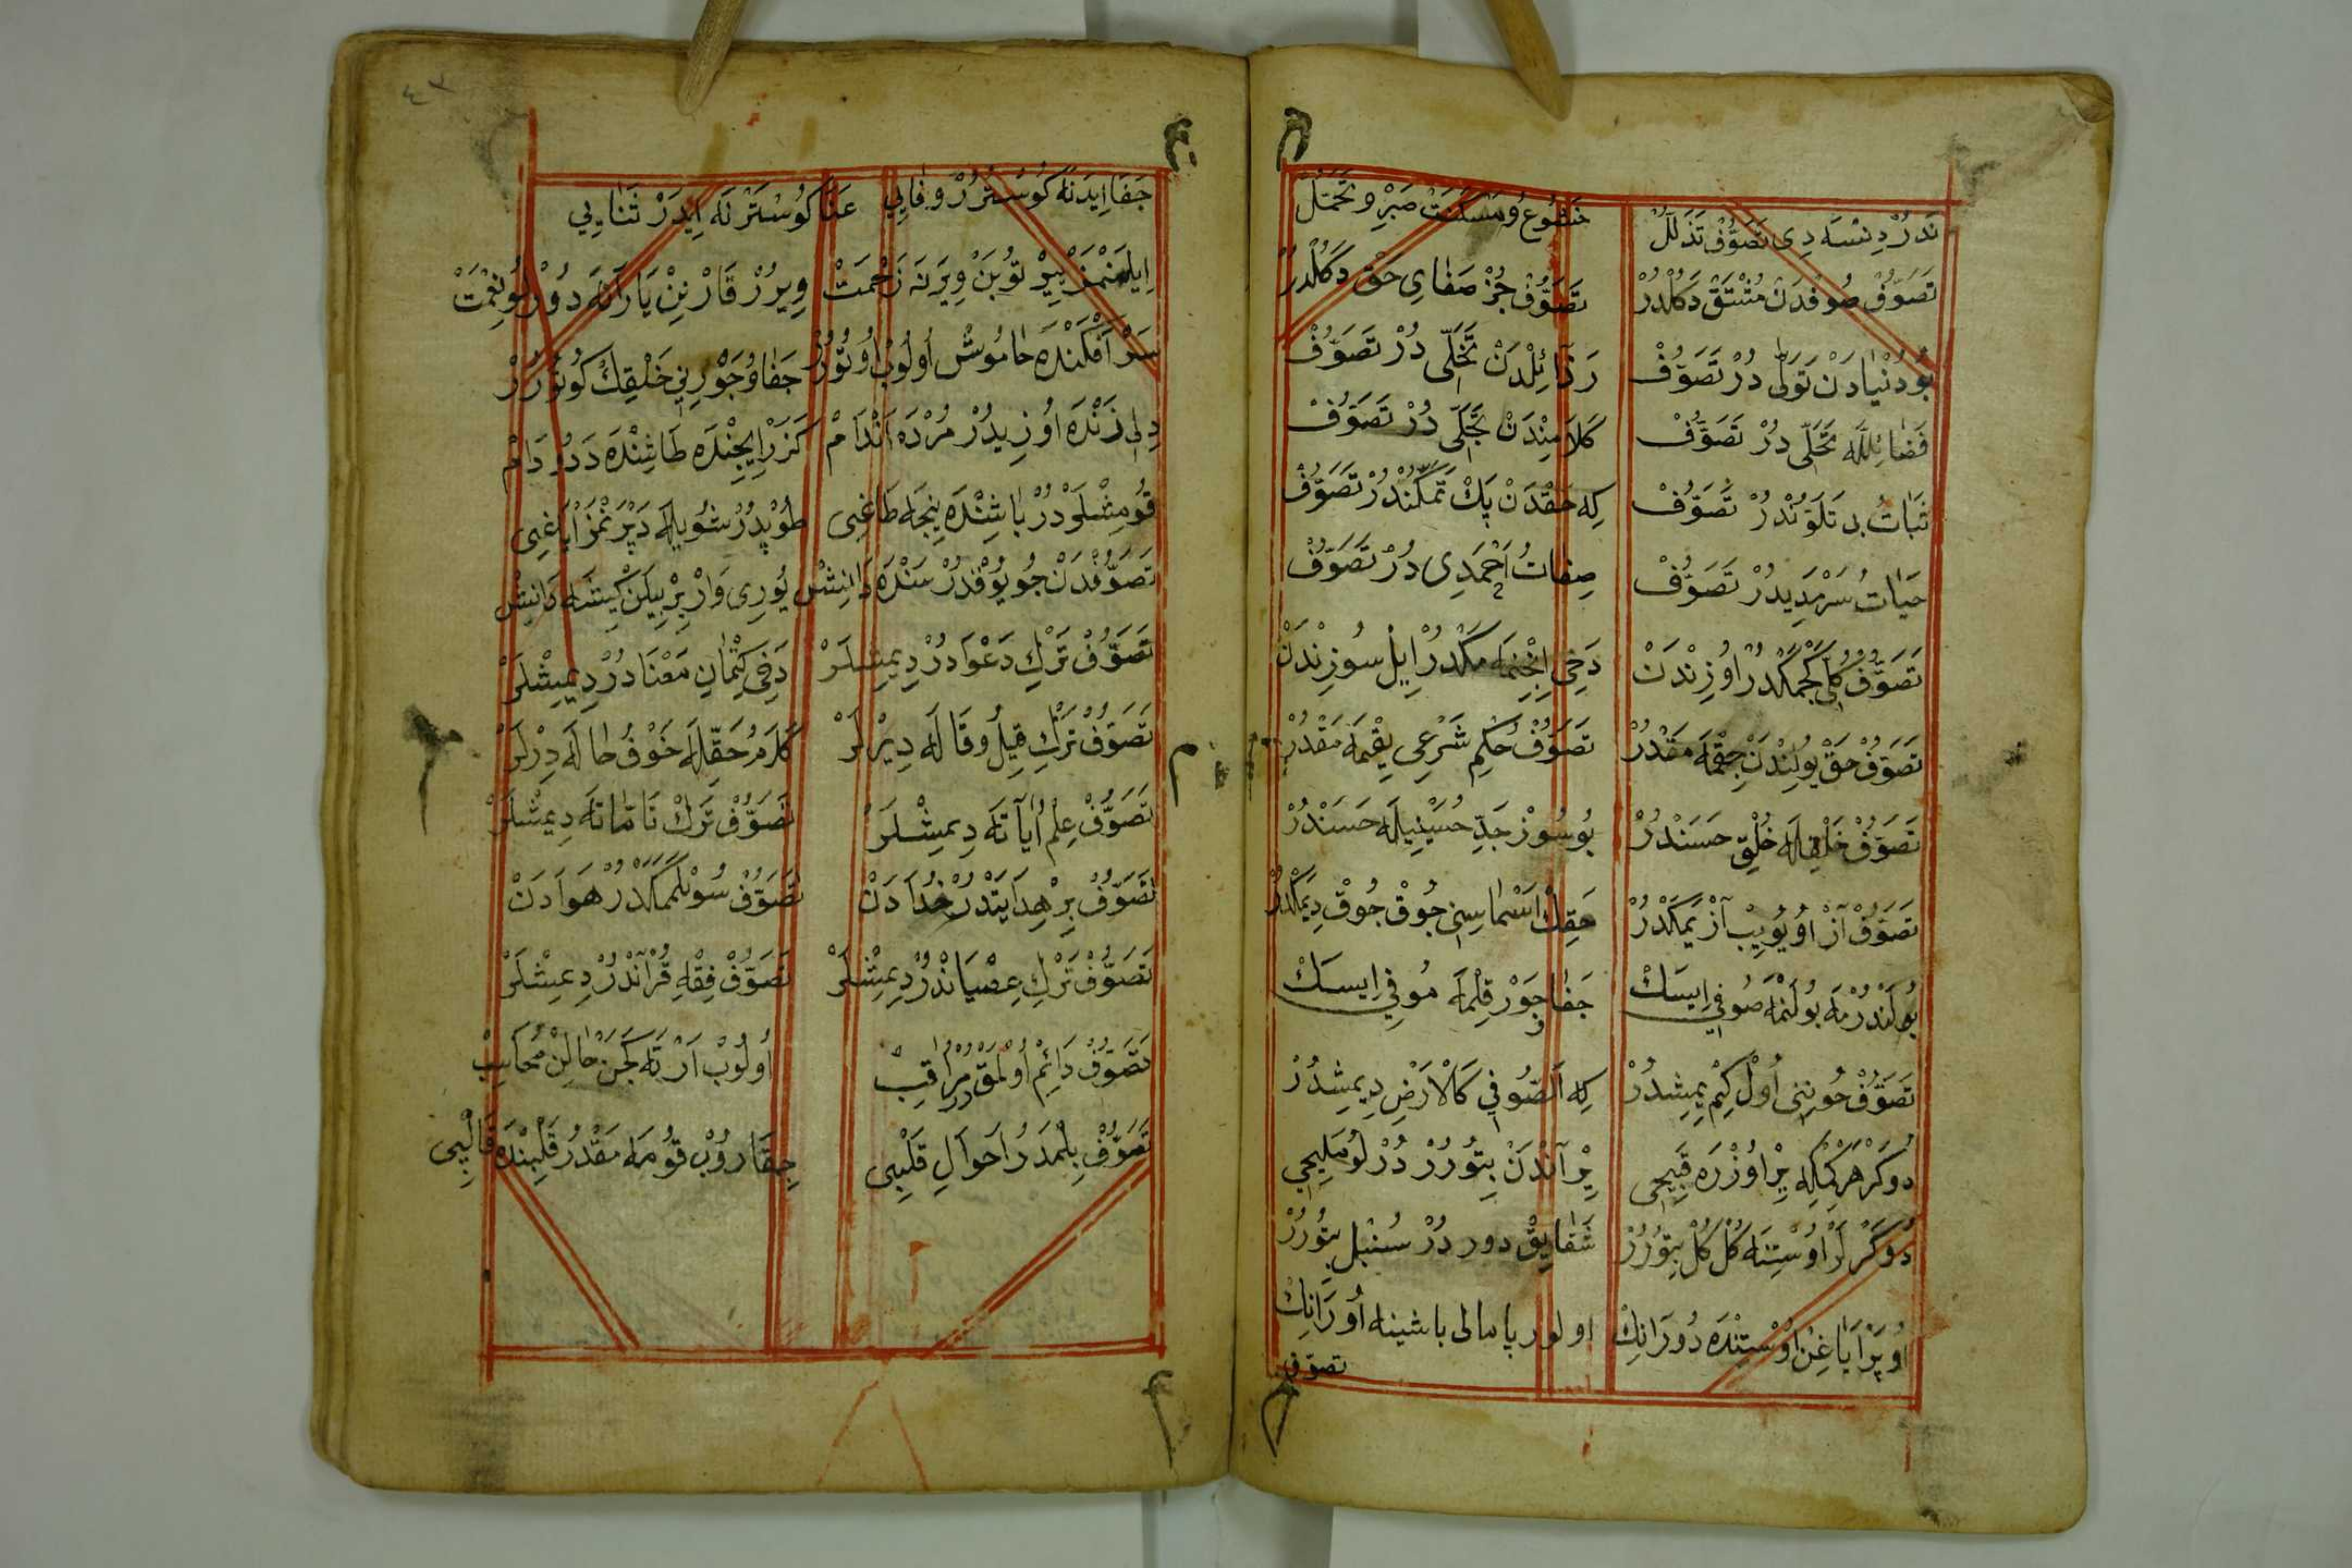 نَدُرْ دِنْسَه دِى تَصَوُّفْ تَذَلُّلْ خُضُوعُ و مَسْكَنَتْ صَبْرِ و تَحَمُّلْ
تَصَوُّفْ صُوفدَنْ مُشْتَقْ دَكُلْدُرْ تَصَوُّفْ جُزْ صَفَاىِ حَقْ دَكُلْدُرْ
بُو دُنْيَادَنْ تَوَلّى دُرْ تَصَوُّفْ رَذَائِلْدَنْ تَخَلّى دُرْ تَصَوُّفْ
فَضَائِلَله تَحَلّى دُرْ تَصَوُّفْ كَلَامِنْدَنْ تَجَلّى دُرْ تَصَوُّفْ
ثَبَاتُ بى تَلَوُّنْدُرْ تَصَوُّفْ كِه حَقْدَنْ پَكْ تَمَكُّنْدُرْ تَصَوُّفْ
حَيَاتُ سَرْمَدِيدُرْ تَصَوُّفْ صِفَاتُ اَحْمَدِى دُرْ تَصَوُّفْ
تَصَوُّفْ كُلّى كَچْمَكْدُرْ اُوزِنْدَنْ دَخِى اِنْجِنْمَه مَكْدُرْ اِيلْ سُوزِنْدَنْ
تَصَوُّفْ حَقْ يُولِنْدَنْ چِقْمَه مَقْدُرْ تَصَوُّفْ حُكْمِ شَرْعِى يِقْمَه مَقْدُرْ
تَصَوُّفْ خَلْقِلَه خُلْقِ حَسَنْدُرْ بُو سُوزْ جَدِّ حُسَيْنِيلَه حَسَنْدُرْ
تَصَوُّفْ آزْ اُويُويِبْ آزْ يَمَكْدُرْ حَقِكْ اَسْمَاسِنِى چُوقْ چُوقْ دِيمَكْدُرْ
بُولَنْدُرْمَه بُولَنْمَه صُوفِى اِيسَكْ جَفَا و جَوْر قِلْمَه مُوفِى اِيسَكْ
تَصَوُّفْ چُونِنِى اُولْ كِيمْ يِمِشدُرْ كِه اَلصُّوفِى كَالْاَرْضِ دِيمِشدُرْ
دُوكَرْ هَرْ كِمْكِه يِرْ اُوزْرَه قَبِيحِى يِرْ آنْدَنْ بِتُورُرْ دُرْلُو مَلِيحِى
دُوكَرْلَرْ اُوسْتِنَه كُلْ كُلْ بِتُورُرْ شَقَايِقْ دور دُرْ سُنْبُل بِتُورُرْ
اُوپَرْ اَيَاغِنْ اُوسْتِنْدَه دُورَانِكْ اولور پامالى باشينه اُورَانِكْ
تصوّف
٤٣
جَفَا اِيدَنَه كُوسْتَرُرْ وَفَايِى عَنَا كُوسْتَرَنَه اِيدَرْ ثَنَايِى
اِيلَنْمَزْ بِيرْ تُوبَنْ وِيَرَنَه زَحْمَتْ وِيرُرْ قَارْنِنْ يَارَانَه دُورْلُو نِعْمَتْ
سَرْ اَفْكَنْدَه خَامُوشْ اُولُوبْ اُوتُورُرْ جَفَا وُ جَوْرِنِى خَلْقِكْ كُوتُورُرْ
دِلى زَنْدَه اُوزِيدُرْ مُرْدَه اَنْدَامْ كَزَرْ اِيچِنْدَه طَاشِنْدَه دَدُو دَامْ
قُومِشْلَرْدُرْ بَاشِنْدَه نِيجَه طَاغِى طُوپِدُرْ شُويلَه دَپْرَنْمَزْ اَيَاغِى
تَصَوُّفْدَنْ چُو يُوقْدُرْ سَنْدَه دَانِشْ يُورِى وَارْ بِرْ بِيلَنْ كِيشَه دَانِشْ
تَصَوُّفْ تَرْكِ دَعْوَادُرْ دِيمِشْلَرْ دَخِى كِتْمَانِ مَعْنَادُرْ دِيمِشْلَرْ
تَصَوُّفْ تَرْكِ قِيلُ وقَالَه دِيرْلَرْ كَلَامُ حَقِّلَه خَوْفُ حَالَه دِرْلَرْ
تَصَوُّفْ عِلْمُ اٰيَاتَه دِيمِشْلَرْ تَصَوُّفْ تَرْكْ طَامَّاتَه دِيمِشْلَرْ
تَصَوُّفْ بِرْ هِدَايَتْدُرْ خُدَادَنْ تَصَوُّفْ سُويْلَمَمَكْدُرْ هَوَادَنْ
تَصَوُّفْ تَرْكِ عِصْيَانْدُرْ دِيمِشْلَرْ تَصَوُّفْ فِقْهِ قُرْآنْدُرْ دِيمِشْلَرْ
تَصَوُّفْ دَائِمْ اُولْمَقْدُرْ مُرَاقِبْ اُولُوبْ اَرْتَه كَجَنْ حَالِنْ مُحَاسِبْ
تَصَوُّفْ بِلْمَدُرْ اَحْوَالِ قَلْبِى چِقَارُوبْ قُومَه مَقْدُرْ قَلْبِنْدَه قَالْبِى